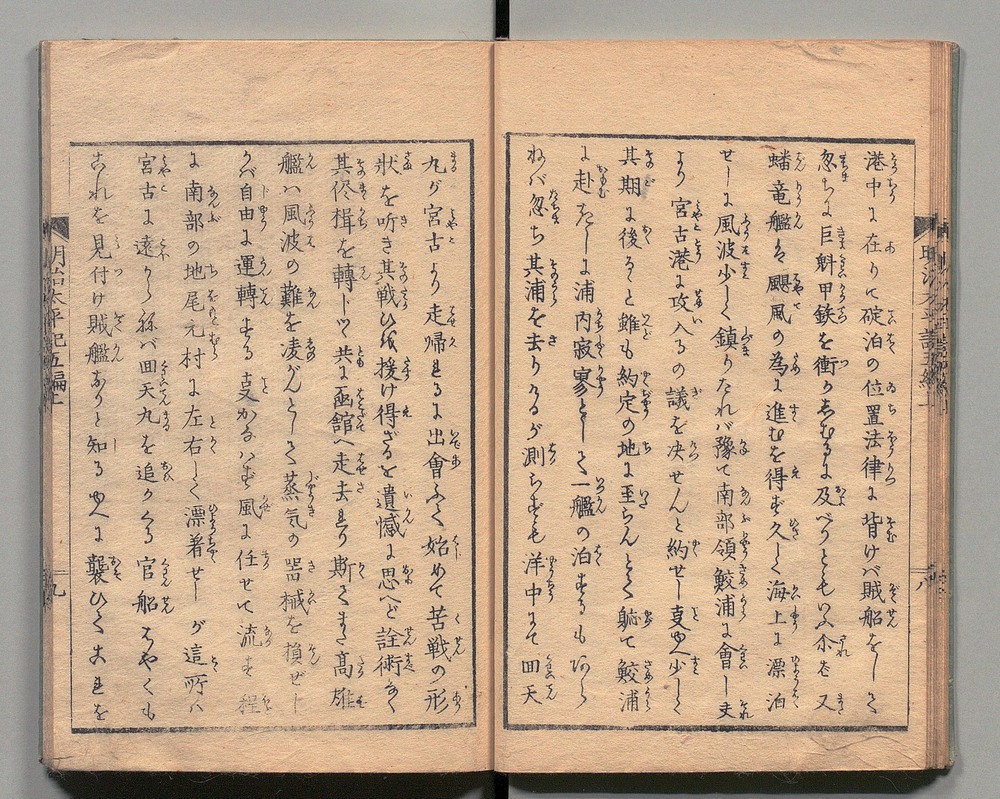 港中に在りて碇泊の位置法律に背けバ賊船をして
忽ちに巨魁甲鉄を衝かしむるに及べりともいふ余は又
蟠竜艦は颶風の為に進むを得ず久しく海上に漂泊
せしに風波少しく鎮りたれバ豫て南部領鮫浦に會し夫
より宮古港に攻入るの議を决せんと約せし夏ゆゑ少しく
其期に後ると雖も約定の地に至らんとて軈て鮫浦
に赴きたるに浦内寂寥として一艦の泊するもあら
ねバ忽ち其浦を去りけるが測らずも洋中にて回天
丸が宮古より走帰れるに出會ふて始めて苦戦の形
状を听き其戦ひを援け得ざるを遺憾に思へど詮術なく
其侭楫を轉トつ共に函館へ走去れり斯てまた髙雄
艦ハ風波の難を凌がんとして蒸気の噐械を損ぜし
かバ自由に運轉する夏かなはず風に任せて流す程
に南部の地尾元村に左右して漂着せしが這所ハ
宮古に遠からねバ回天丸を追かくる官船はやくも
これを見付け賊艦なりと知るゆゑに襲ひてこれを
明治太平記五編上
九
八